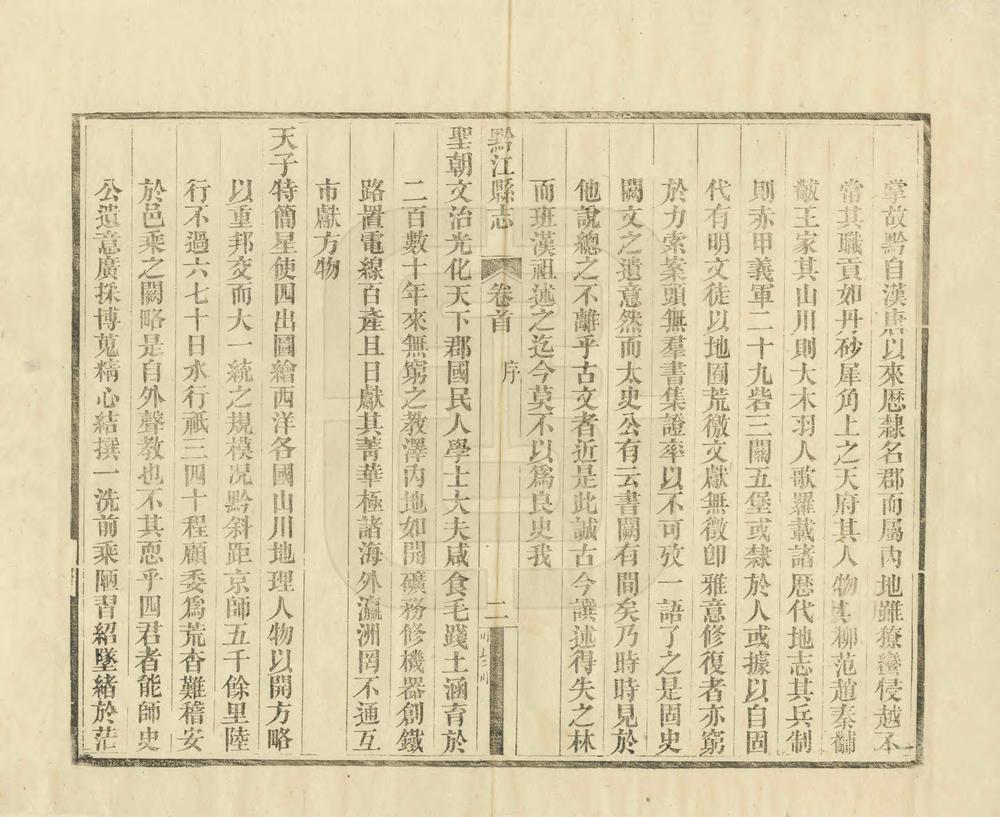 掌故黔自漢唐以來歴隸名郡而屬內地雖獠蠻侵越不
常其職貢如丹砂犀角上之天府其人物其柳范趙秦黼
黻王家其山川則大木羽人歌羅載諸歴代地志其兵制
則赤甲義軍二十九砦三關五堡或隸於人或據以自固
代有明文徒以地囿荒徼文獻無徵卽雅意修復者亦窮
於力索案頭無羣書集證率以不可攷一語了之是固史
闕文之遺意然而太史公有云書闕有間矣乃時時見於
他說總之不離乎古文者近是此誠古今譔述得失之林
而班漢祖述之迄今莫不以爲良史我
黔江縣志 卷首 序 二
聖朝文治光化天下郡國民人學士大夫咸食毛踐土涵育於
二百數十年來無窮之教澤內地如開礦務修機器創鐵
路置電線百產且日獻其菁華極諸海外瀛洲罔不通互
市獻方物
天子特簡星使四出圖繪西洋各國山川地理人物以開方略
以重邦交而大一統之規模况黔斜距京師五千餘里陸
行不過六七十日水行祇三四十程顧委爲荒杳難稽安
於邑乘之闕略是自外聲教也不其恧乎四君者能師史
公遺意廣採博蒐精心結撰一洗前乘陋習紹墜緒於茫